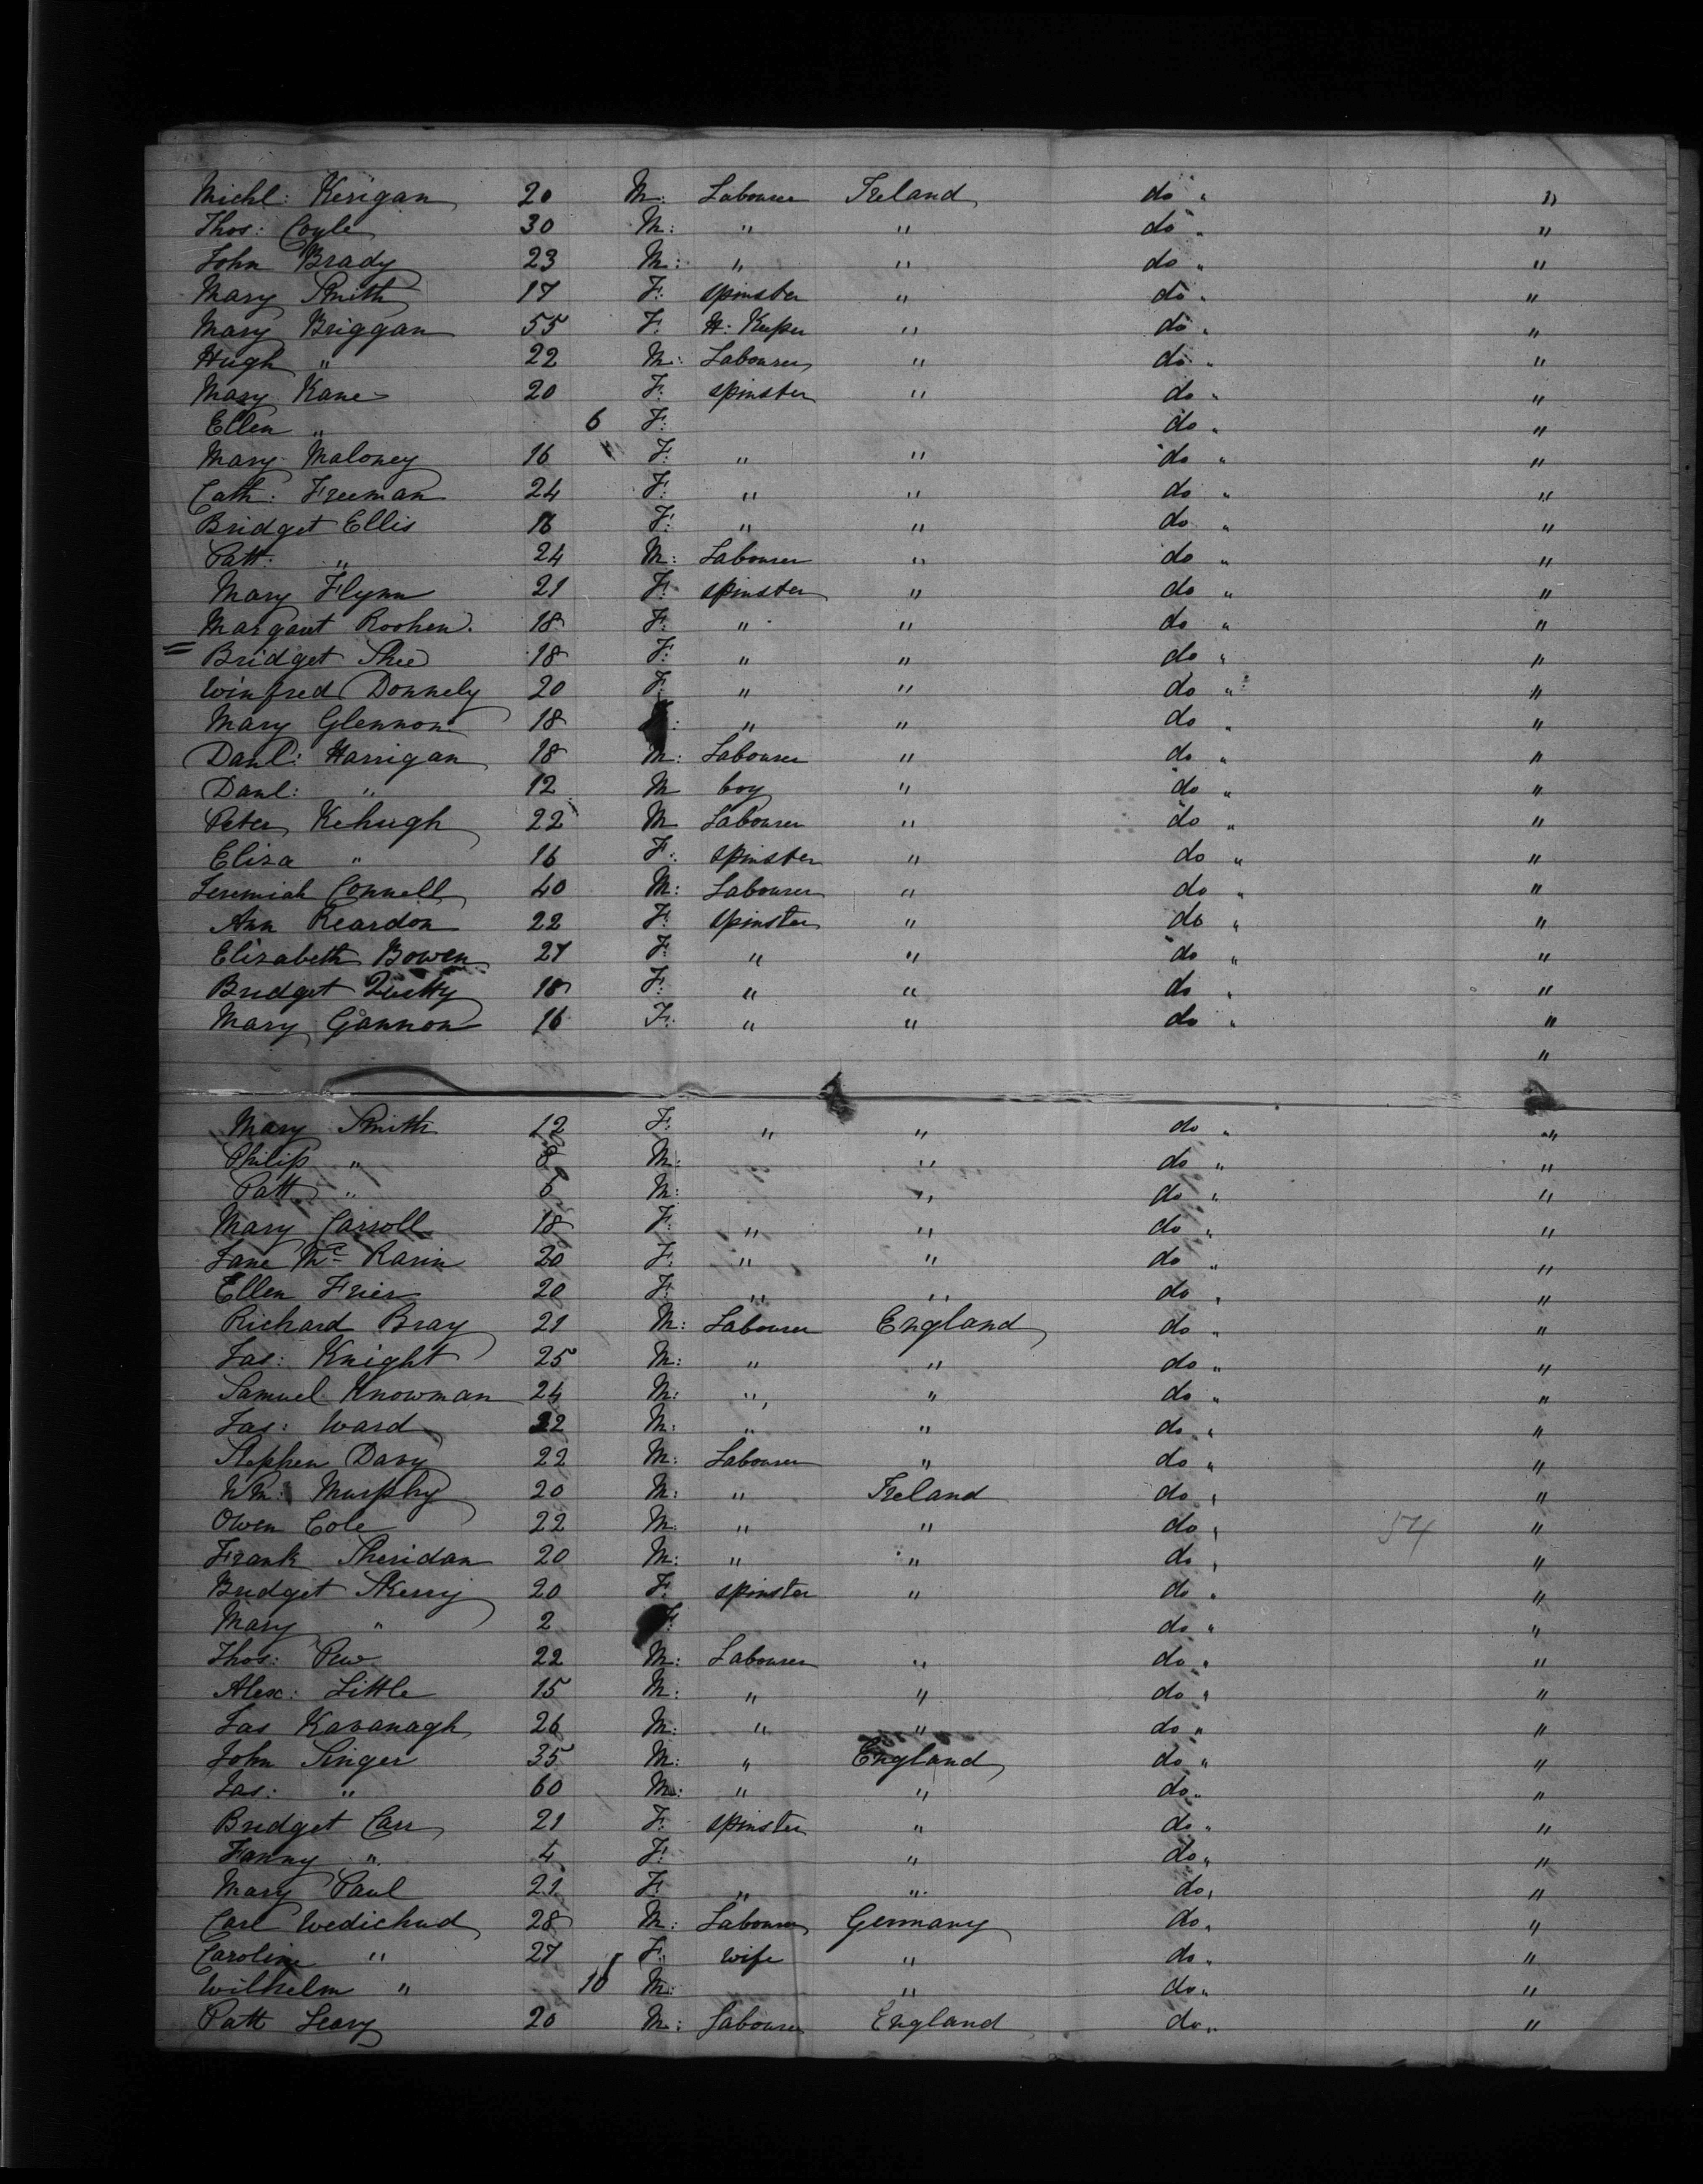 Michl: Kerigan 20 M: Labourer Ireland do " "
Thos: Coyle 30 M: " " do " "
John Brady 23 M: " " do " "
Mary Smith 17 F: spinster " do " "
Mary Briggan 55 F: H: Keeper " do " "
Hugh " 22 M: Labourer " do " "
Mary Kane 20 F: spinster " do " "
Ellen " 6 F: do " "
Mary Maloney 16 F: " " do " "
Cath: Freeman 24 F: " " do " "
Bridget Ellis 16 F: " " do " "
Patt: " 24 M: Labourer " do " "
Mary Flynn 21 F: spinster " do " "
Margaret 18 F: " " do " "
= Bridget Shee 18 F: " " do " "
Winfred Donnely 20 F: " " do " "
Mary Glennon 18 : " " do " "
Danl: Harrigan 18 M: Labourer " do " "
Danl: " 12 M boy " do " "
Peter Kehugh 22 M Labourer " do " "
Eliza " 16 F: spinster " do " "
Jeremiah Connell 40 M: Labourer " do " "
Ann Reardon 22 F: spinster " do " "
Elizabeth Bowen 27 F: " " do " "
Bridget 18 F: " " do " "
Mary Gannon 16 F: " " do " "
"
Mary Smith 12 F: " " do " "
Philip " 8 M: " do " "
Patt " 6 M: " do " "
Mary Carroll 18 F: " " do " "
Jane Mc 20 F: " " do " "
Ellen Frier 20 F: " " do " "
Richard Bray 21 M: Labourer England do " "
Jas: Knight 25 M: " " do " "
Samuel Knowman 24 M: " " do " "
Jas: Ward 22 M: " " do " "
Stephen Davy 22 M: Labourer " do " "
Wm: Murphy 20 M: " Ireland do " "
Owen Cole 22 M: " " do " 54 "
Frank Sheridan 20 M: " " do " "
Bridget Skerry 20 F: spinster " do " "
Mary " 2 F: do " "
Thos: Pew 22 M: Labourer " do " "
Alex: Little 15 M: " " do " "
Jas Kavanagh 26 M: " " do " "
John Singer 35 M: " England do " "
Jas: " 60 M: " " do " "
Bridget Carr 21 F: spinster " do " "
Fanny " 4 F: " do " "
Mary Paul 21 F " " do " "
Carl Wedichud 28 M: Labourer Germany do " "
Caroline " 27 F: wife " do " "
Wilhelm " 10 M: " do " "
Patt Leary 20 M: Labourer England do " "